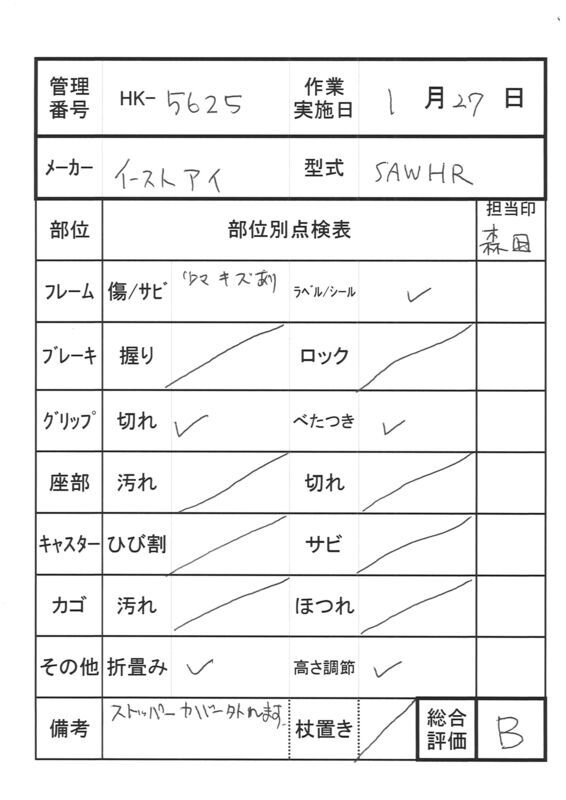 管理番号 HK- 5625 作業実施日 1月27日
メーカー イーストアイ 型式 SAWHR
部位 部位別点検表 担当印
森田
フレーム 傷/サビ キズあり ラベル/シール ✓
ブレーキ 握り ロック
グリップ 切れ ✓ べたつき ✓
座部 汚れ 切れ
キャスター ひび割 サビ
カゴ 汚れ ほつれ
その他 折畳み ✓ 高さ調節 ✓
備考 ストッパーカバー外れます. 杖置き 総合評価 B